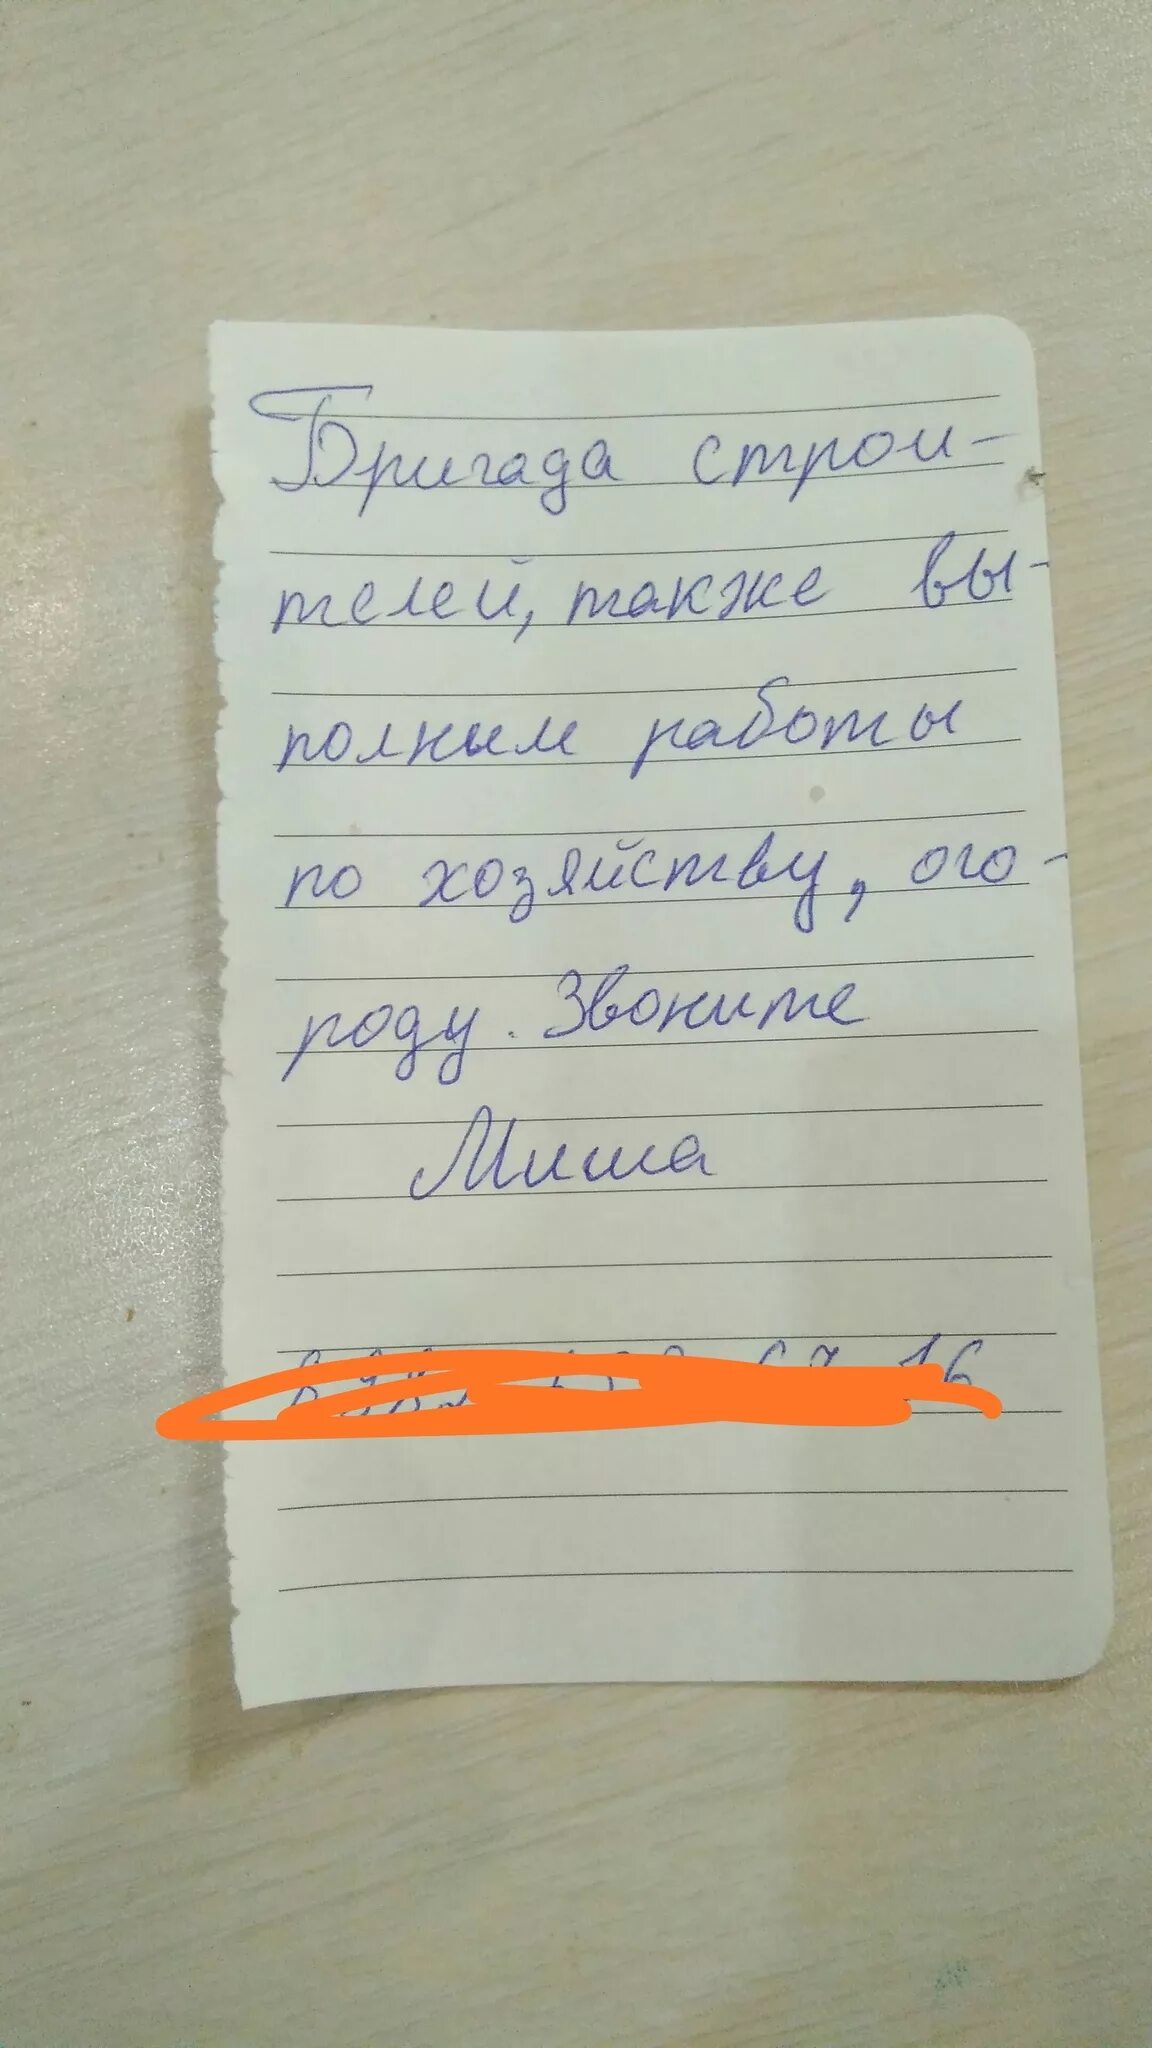 Бригада строи-
телей, также вы-
полним работы
по хозяйству, ого-
роду. Звоните
Миша
16